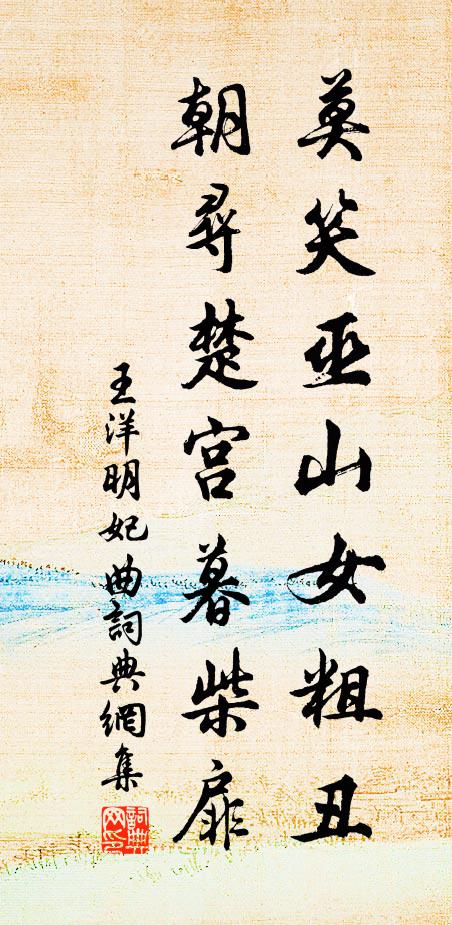 莫笑巫山女粗丑
朝寻楚宫暮柴扉
王洋明妃曲詞典網集
詞典
网印